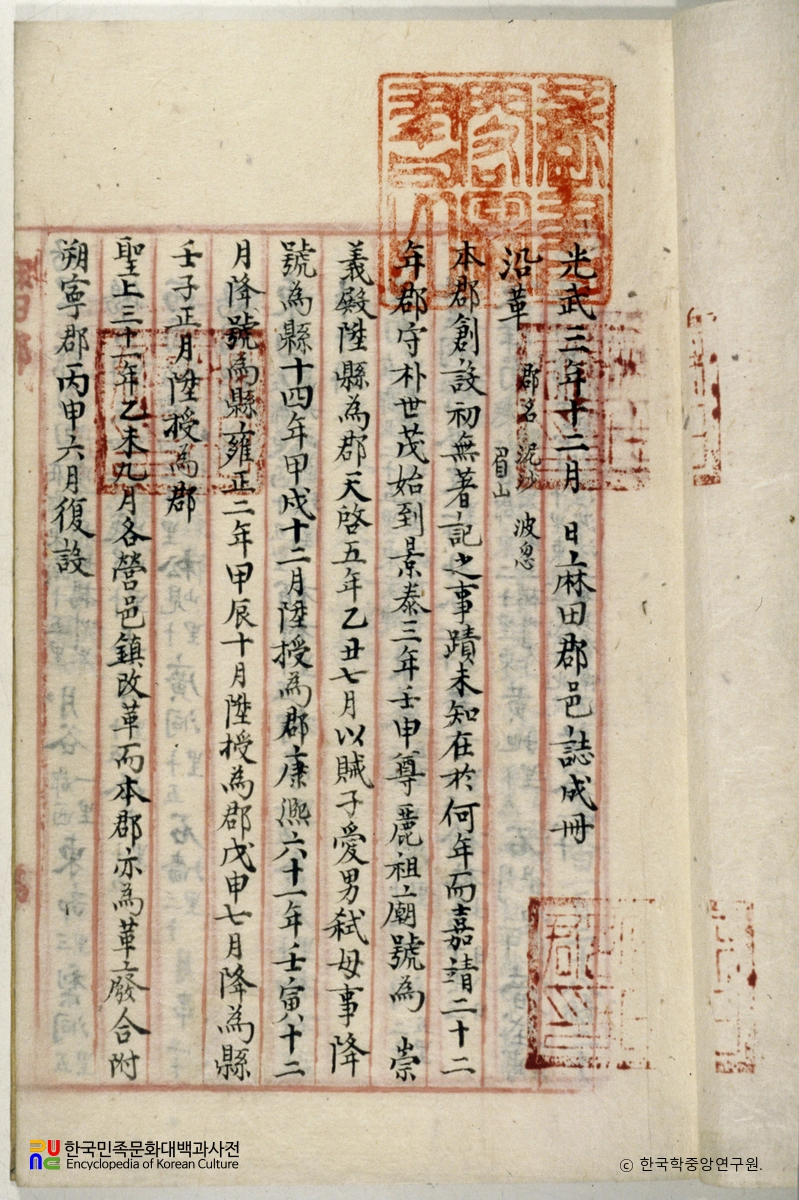 光武三年十二月 日麻田郡邑誌成冊
沿革 郡名 泥沙 波忽
眉山
本郡創設初無著記之事蹟未知在於何年而嘉靖二十二
年郡守朴世茂始到景泰三年壬申尊麗祖廟號為 崇
義殿陞縣為郡天啓五年乙丑七月以賊子愛男弑母事降
號為縣十四年甲戌十二月陞授為郡康熙六十一年壬寅八十二
月降號為縣雍正二年甲辰十月陞授為郡戊申七月降為縣
壬子正月陞授為郡
聖上三十二年乙未九月各營邑鎮改革而本郡亦為革廢合附
朔寧郡丙申六月復設
한국민족문화대백과사전
Encyclopedia of Korean Culture
© 한국학중앙연구원.